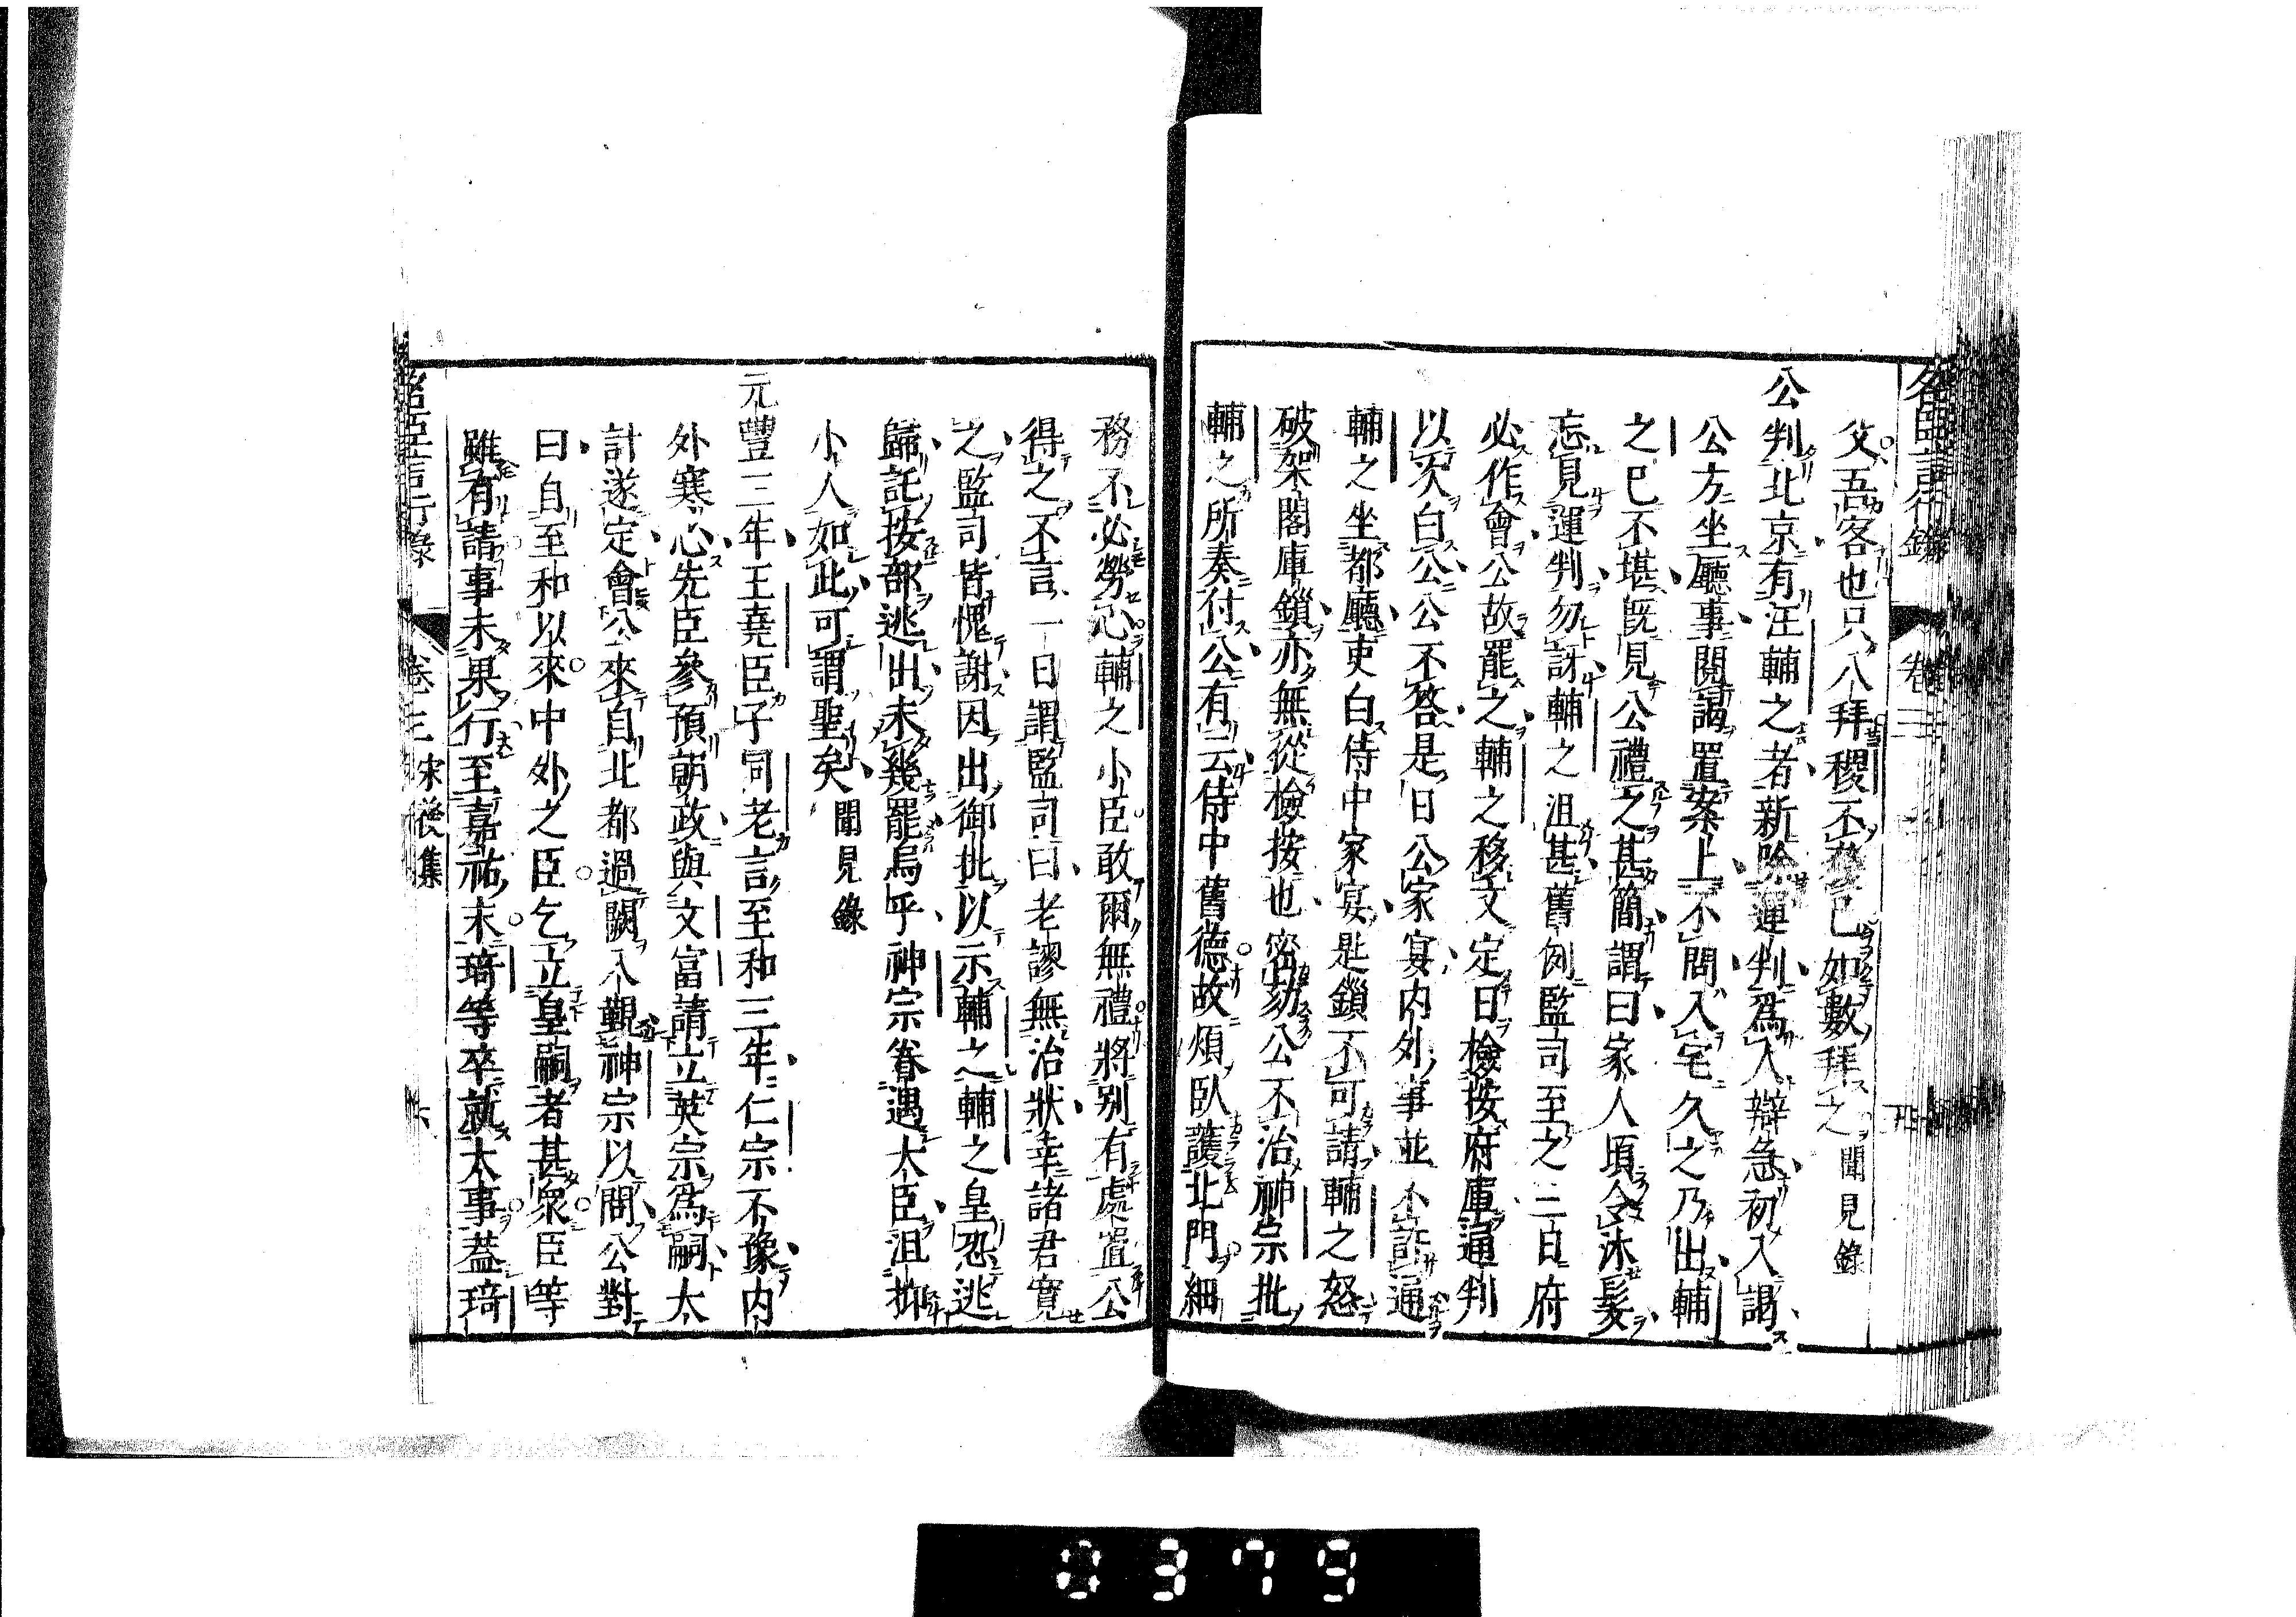 父吾客也只八拜稷不獲已如數拜之 聞見錄
公判北京有汪輔之者新除運判爲人辯急初入謁
公方坐廳事閱謁置案上不問入宅久之乃出輔
之已不堪旣見公禮之甚簡謂曰家人須令沐髮
忘見運判勿訝輔之沮甚舊例監司至之三日府
必作會公故罷之輔之移文定日檢按府庫通判
以次白公公不答是日公家宴内外事並不許通
輔之坐都廳吏白侍中家宴匙鎖不可請輔之怒
破架閣庫鎖亦無從檢按也密劾公不治神宗批
輔之所奏付公有云侍中舊德故煩臥護北門細
務不必勞心輔之小臣敢爾無禮將别有處置公
得之不言一日謂監司曰老謬無治狀幸諸君寬
之監司皆愧謝因出御批以示輔之輔之皇恐逃
歸託按部逃出未幾罷烏乎神宗眷遇大臣沮抑
小人如此可謂聖矣 聞見錄
元豐三年王堯臣子同老言至和三年仁宗不豫内
外寒心先臣參預朝政與文富請立英宗爲嗣太
計遂定會公來自北都過闕入覲神宗以問公對
曰自至和以來中外之臣乞立皇嗣者甚衆臣等
雖有請事未果行至嘉祐末琦等卒就太事葢琦
名臣言行錄 卷三 宋後集 六
0379